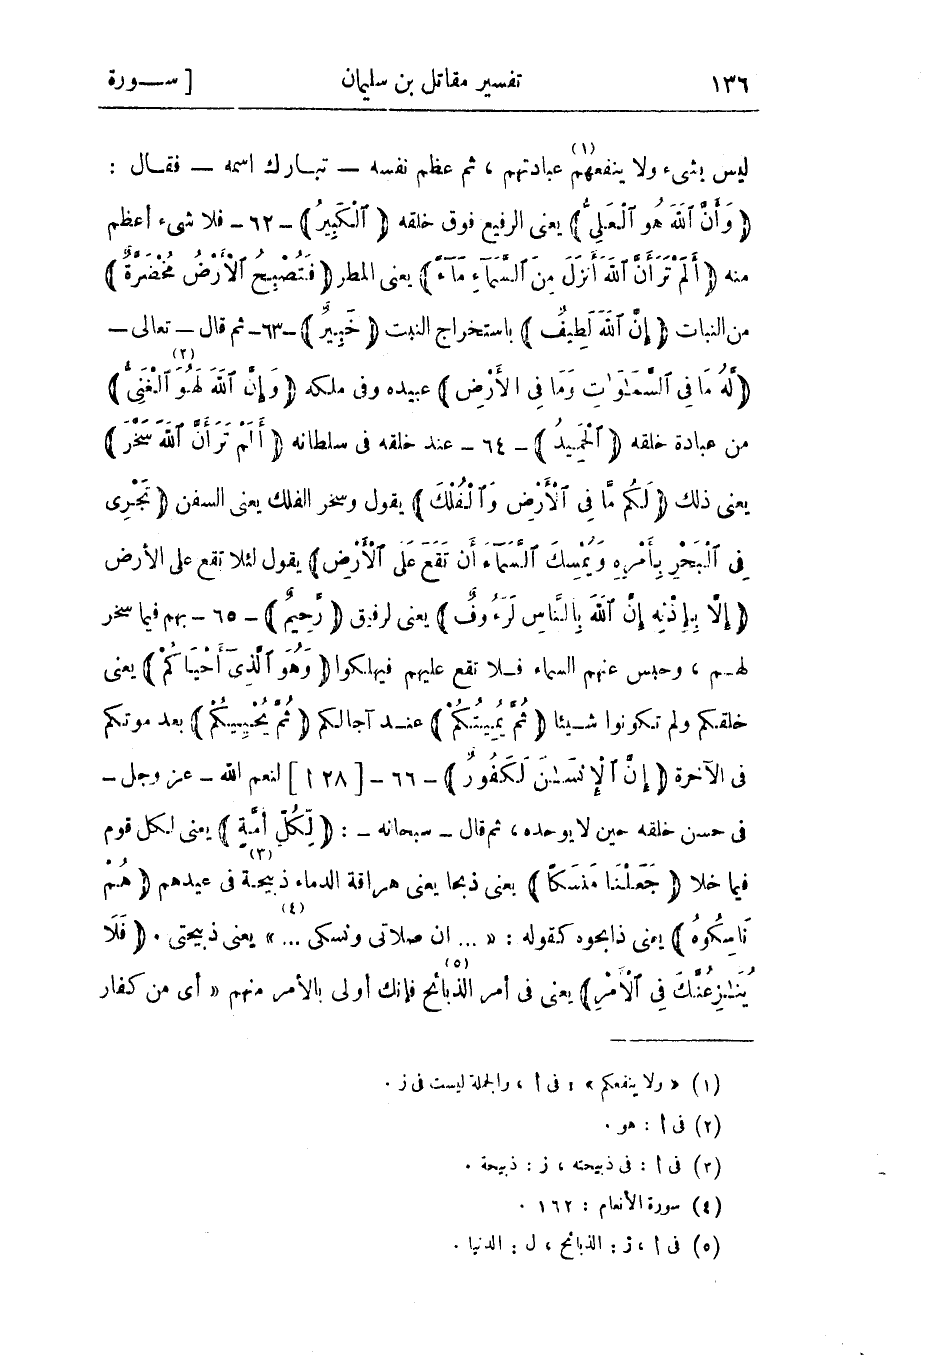 ١٣٦ تفسير مقاتل بن سليمان [ ســورة
ليس بشىء ولا ينفعهم (١) عبادتهم ، ثم عظم نفسه — تبارك اسمه — فقال :
﴿ وَأَنَّ ٱللَّهَ هُوَ ٱلْعَلِىُّ ﴾ يعنى الرفيع فوق خلقه ﴿ ٱلْكَبِيرُ ﴾ - ٦٢ - فلا شىء أعظم
منه ﴿ أَلَمْ تَرَ أَنَّ ٱللَّهَ أَنزَلَ مِنَ ٱلسَّمَآءِ مَآءً ﴾ يعنى المطر ﴿ فَتُصْبِحُ ٱلْأَرْضُ مُخْضَرَّةً ﴾
من النبات ﴿ إِنَّ ٱللَّهَ لَطِيفٌ ﴾ باستخراج النبت ﴿ خَبِيرٌ ﴾ -٦٣- ثم قال — تعالى —
﴿ لَّهُ مَا فِى ٱلسَّمَـٰوَٰتِ وَمَا فِى ٱلأَرْضِ ﴾ عبيده وفى ملكه ﴿ وَإِنَّ ٱللَّهَ لَهُوَ (٢) ٱلْغَنِىُّ ﴾
من عبادة خلقه ﴿ ٱلْحَمِيدُ ﴾ - ٦٤ - عند خلقه فى سلطانه ﴿ أَلَمْ تَرَ أَنَّ ٱللَّهَ سَخَّرَ ﴾
يعنى ذلك ﴿ لَكُم مَّا فِى ٱلْأَرْضِ وَٱلْفُلْكَ ﴾ يقول وسخر الفلك يعنى السفن ﴿ تَجْرِى
فِى ٱلْبَحْرِ بِأَمْرِهِ وَيُمْسِكُ ٱلسَّمَآءَ أَن تَقَعَ عَلَى ٱلْأَرْضِ ﴾ يقول لئلا تقع على الأرض
﴿ إِلَّا بِإِذْنِهِ إِنَّ ٱللَّهَ بِٱلنَّاسِ لَرَءُوفٌ ﴾ يعنى لرفيق ﴿ رَّحِيمٌ ﴾ - ٦٥ - بهم فيما سخر
لهم ، وحبس عنهم السماء فلا تقع عليهم فيهلكوا ﴿ وَهُوَ ٱلَّذِىٓ أَحْيَاكُمْ ﴾ يعنى
خلقكم ولم تكونوا شيئا ﴿ ثُمَّ يُمِيتُكُمْ ﴾ عند آجالكم ﴿ ثُمَّ يُحْيِيكُمْ ﴾ بعد موتكم
فى الآخرة ﴿ إِنَّ ٱلْإِنسَـٰنَ لَكَفُورٌ ﴾ - ٦٦ - [ ٢٨ أ ] لنعم الله - عز وجل -
فى حسن خلقه حين لا يوحده ، ثم قال - سبحانه - : ﴿ لِّكُلِّ أُمَّةٍ ﴾ يعنى لكل قوم
فيما خلا ﴿ جَعَلْنَا مَنسَكًا ﴾ يعنى ذبحا يعنى هراقة الدماء ذبيحة (٣) فى عيدهم ﴿ هُمْ
نَاسِكُوهُ ﴾ يعنى ذابحوه كقوله : « ... ان صلاتى ونسكى ... » (٤) يعنى ذبيحتى . ﴿ فَلَا
يُنَـٰزِعُنَّكَ فِى ٱلْأَمْرِ ﴾ يعنى فى أمر الذبائح (٥) فإنك أولى بالأمر منهم « أى من كفار
(١) « ولا ينفعكم » : فى أ ، والجملة ليست فى ز .
(٢) فى أ : هو .
(٣) فى أ : فى ذبيحته ، ز : ذبيحة .
(٤) سورة الأنعام : ١٦٢ .
(٥) فى أ ، ز : الذبائح ، ل : الدنيا .